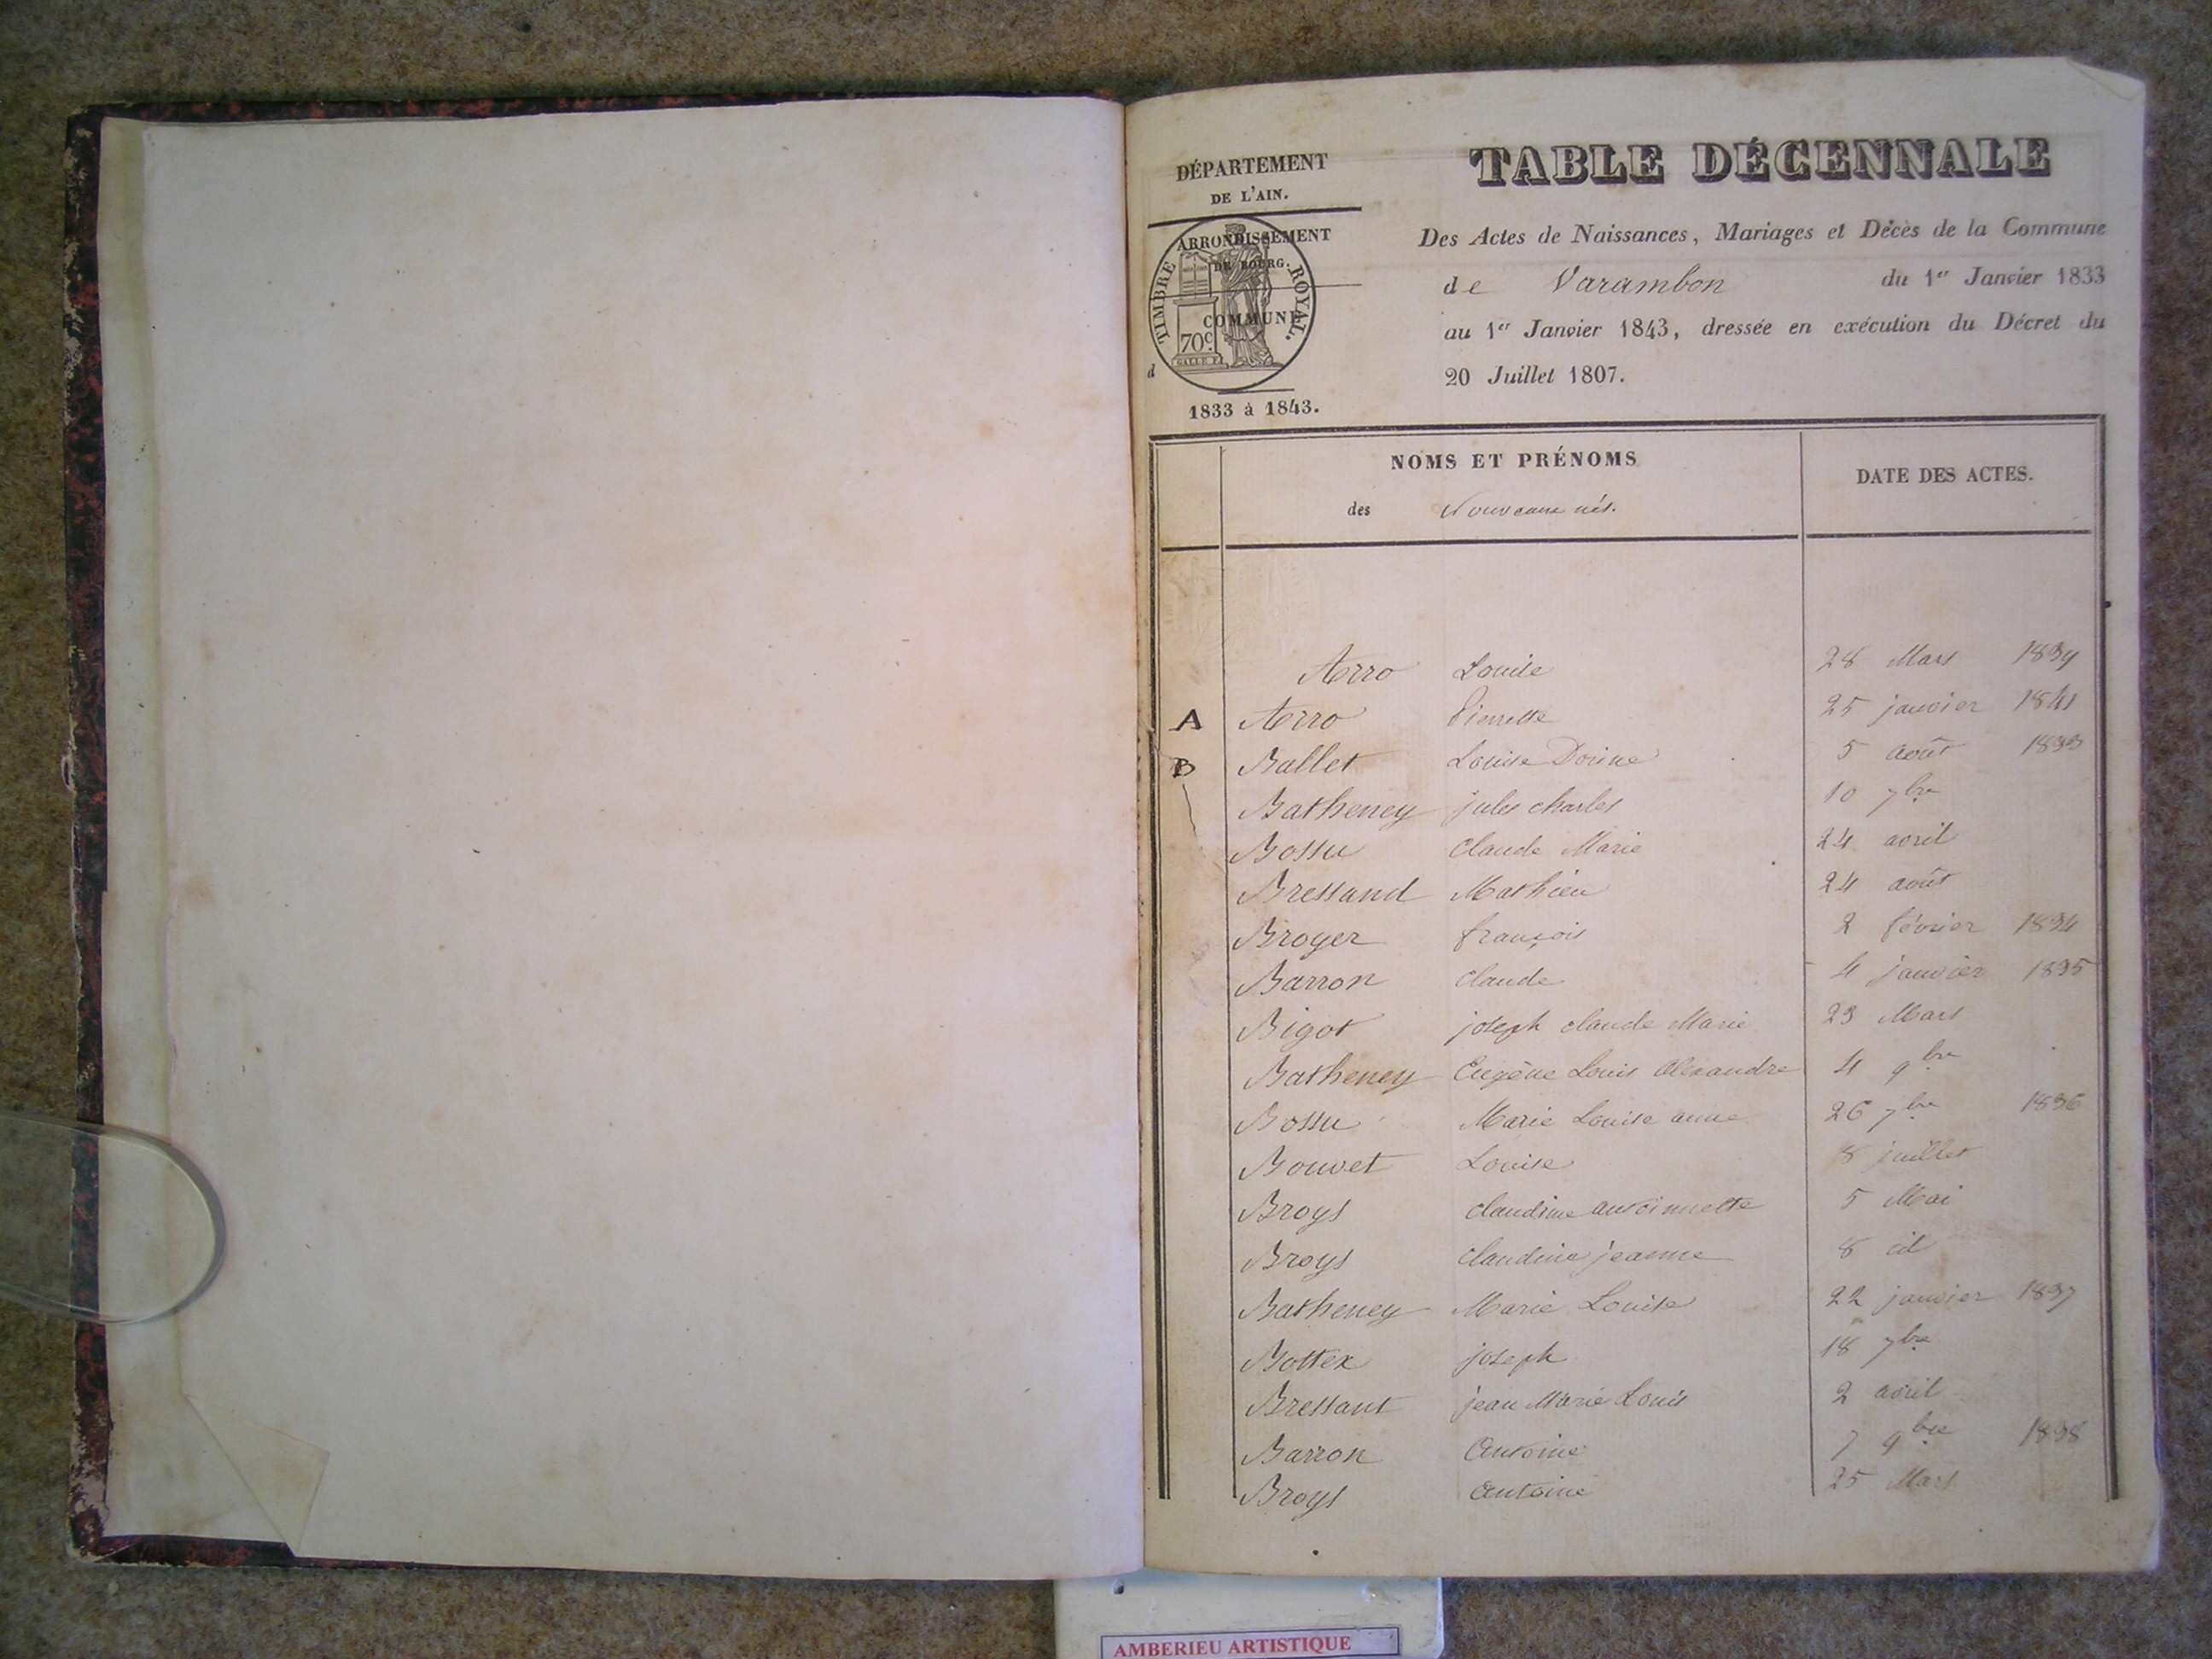 DÉPARTEMENT
DE L'AIN.
ARRONDISSEMENT
DE BOURG.
COMMUNE
d
TIMBRE ROYAL.
70c
GALLE F.
1833 à 1843.
TABLE DÉCENNALE
Des Actes de Naissances, Mariages et Décès de la Commune
de Varambon du 1er Janvier 1833
au 1er Janvier 1843, dressée en exécution du Décret du
20 Juillet 1807.
NOMS ET PRÉNOMS
des Nouveaux nés.
DATE DES ACTES.
Louise 28 Mars 1839
A Pierrette 25 janvier 1841
B Ballet Louise Dorine 5 août 1833
Batheney jules charles 10 7bre
Bossu Claude Marie 24 avril
Bressand Mathieu 24 août
Broyer françois 2 février 1834
Barron Claude 4 janvier 1835
Bigot joseph claude Marie 23 Mars
Batheney Eugène Louis Alexandre 4 9bre
Bossu Marie Louise anne 26 7bre 1836
Bouvet Louise 8 juillet
Broys claudine antoinette 5 Mai
Broys claudine jeanne 8 id
Batheney Marie Louise 22 janvier 1837
Bottex joseph 18 7bre
Bressant jean Marie Louis 2 avril
Barron Antoine 7 9bre 1838
Broys antoine 25 Mars
AMBERIEU ARTISTIQUE